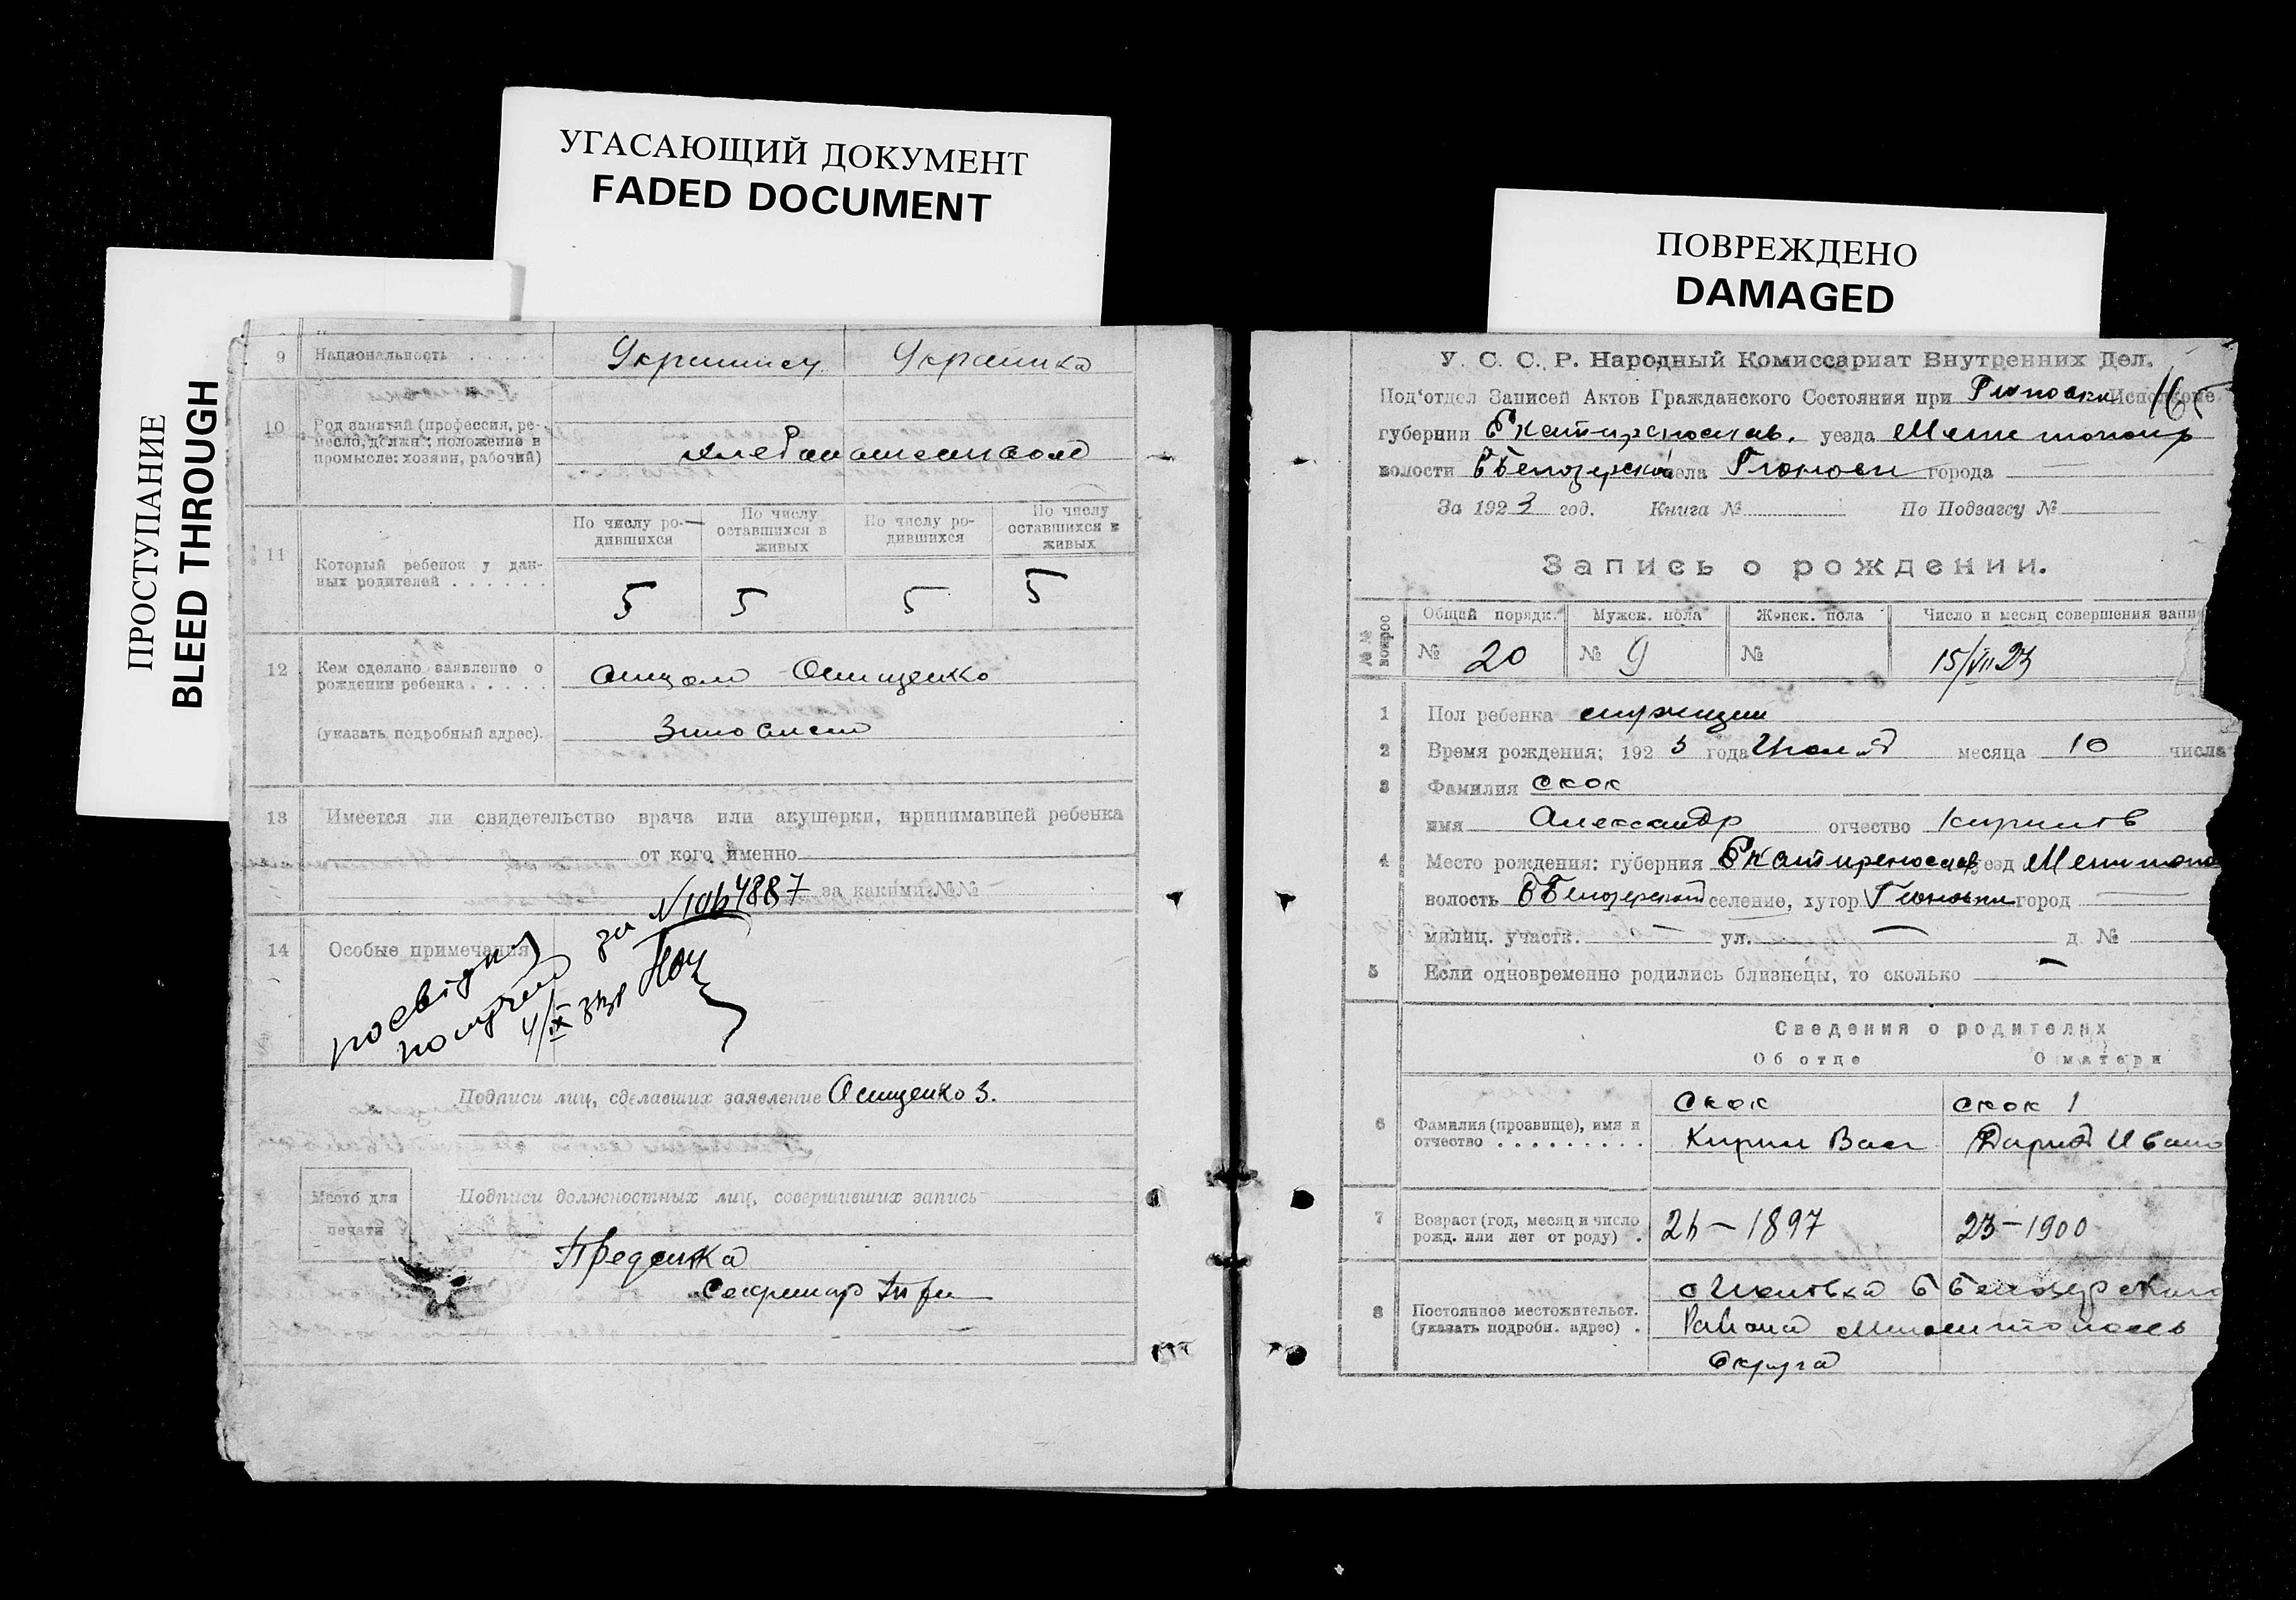 УГАСАЮЩИЙ ДОКУМЕНТ
FADED DOCUMENT
ПРОСТУПАНИЕ
BLEED THROUGH
ПОВРЕЖДЕНО
DAMAGED
9 Национальность Украинец Украинка
10 Род занятий (профессия, ре-
месло, должн.; положение в
промысле: хозяин, рабочий)
хлебопашество
11 Который ребенок у дан-
ных родителей
По числу ро-
дившихся
По числу
оставшихся в
живых
По числу ро-
дившихся
По числу
оставшихся в
живых
5 5 5 5
12 Кем сделано заявление о
рождении ребенка
отцом Онищенко
(указать подробный адрес).
13 Имеется ли свидетельство врача или акушерки, принимавшей ребенка
от кого именно
за какими №№
14 Особые примечания
4887
Подписи лиц, сделавших заявление Онищенко З.
Место для
печати
Подписи должностных лиц, совершивших запись
Секретарь
У. С. С. Р. Народный Комиссариат Внутренних Дел.
Под'отдел Записей Актов Гражданского Состояния при
губернии Екатеринослав. уезда Мелитополь
волости ББелозерской села города
За 1923 год. Книга № По Подзагсу №
Запись о рождении.
№№ вопрос
Общий порядк. Мужск. пола Женск. пола Число и месяц совершения запи
№ 20 № 9 № 15/VII 23
1 Пол ребенка мужчина
2 Время рождения: 1923 года Июля месяца 10 числа
3 Фамилия Скок
имя Александр отчество Кирилов
4 Место рождения: губерния Екатеринослав уезд Мелитопо
волость ББелозерской селение, хутор город
милиц. участк. ул. д №
5 Если одновременно родились близнецы, то сколько —
Сведения о родителях
Об отце О матери
6 Фамилия (прозвище), имя и
отчество
Скок Скок
Кирил Вас Дария Ивано
7 Возраст (год, месяц и число
рожд. или лет от роду)
26 – 1897 23 – 1900
8 Постоянное местожительст.
(указать подробн. адрес)
ББелозерского
Района Мелитополь
Округа